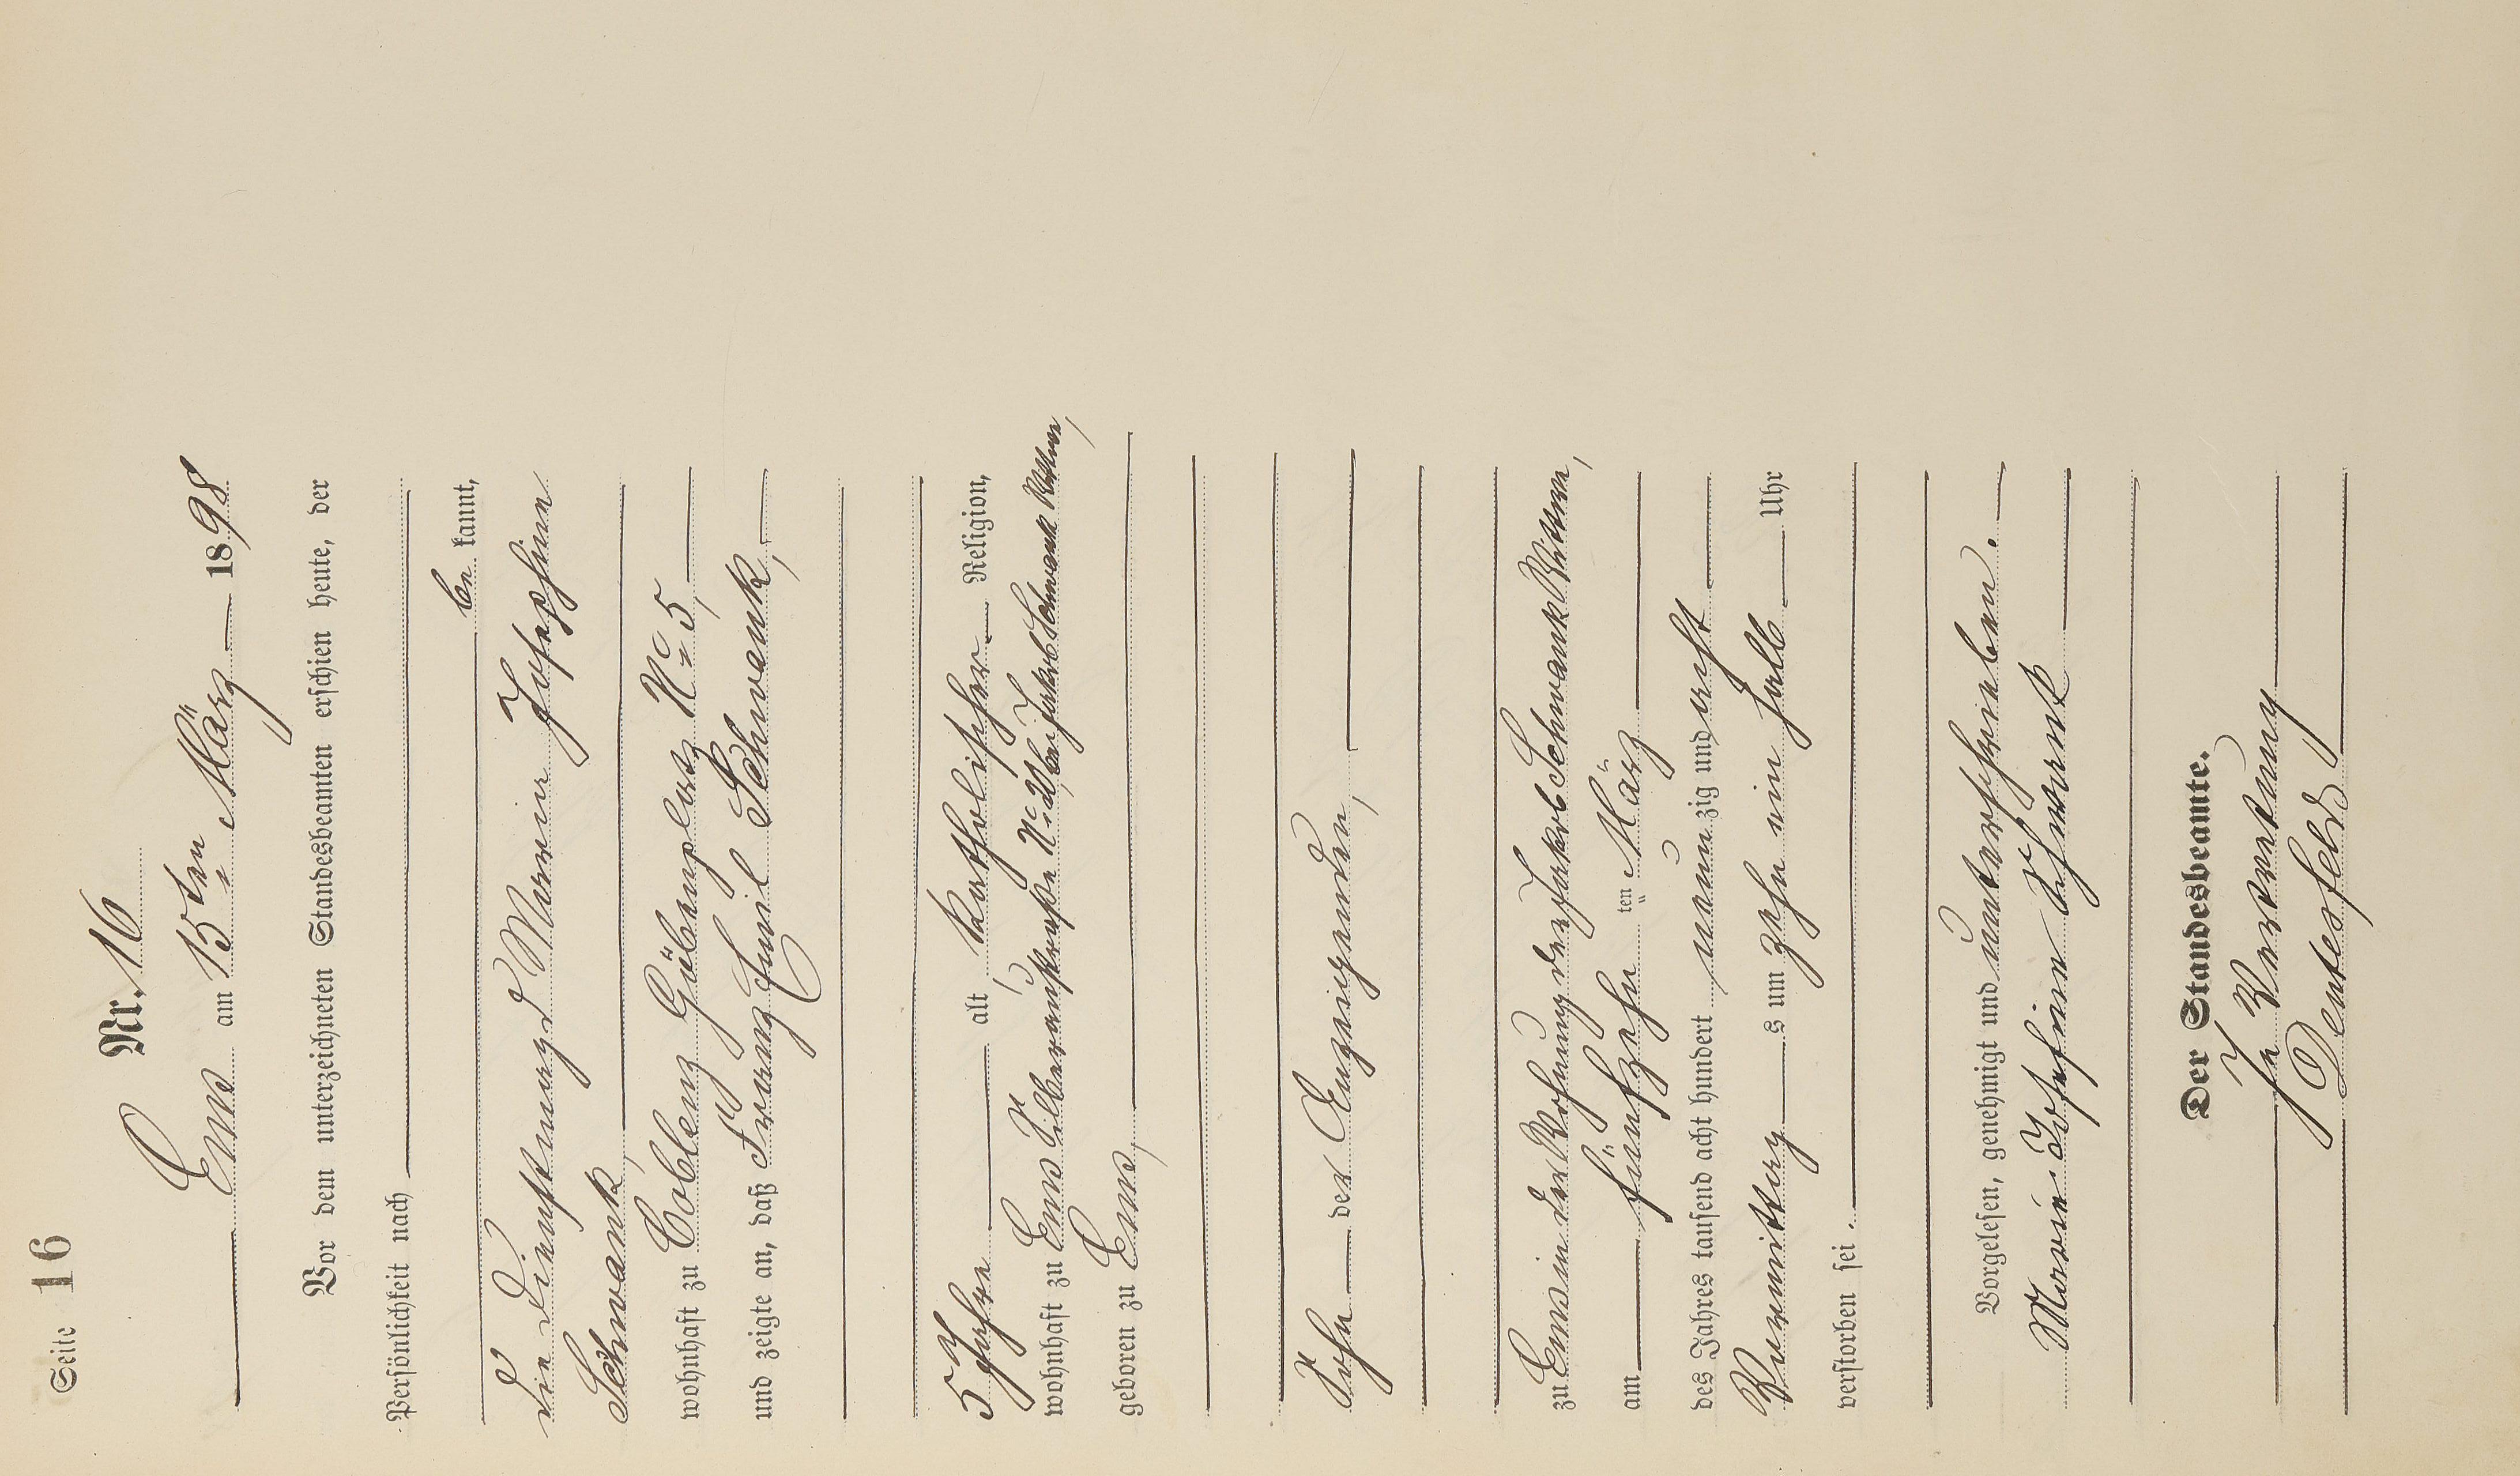 Seite 16
Nr. 16
Ems am 15ten März 1898
Vor dem unterzeichneten Standesbeamten erschien heute, der
Persönlichkeit nach
be kannt,
die Dienstmagd Marie Josephine
Schwank,
wohnhaft zu Coblenz Göbenplatz No 5,
und zeigte an, daß Franz Emil Schwank,
5 Jahre alt, katholischer Religion,
wohnhaft zu Ems Silberaustraße No bei Jakob Schwank Wittwe,
geboren zu Ems,
Sohn der Anzeigenden,
zu Ems in der Wohnung der Jakob Schwank Wittwe,
am fünfzehn ten März
des Jahres tausend acht hundert neun zig und acht
Vormittags um zehn ein halb Uhr
verstorben sei.
Vorgelesen, genehmigt und unterschrieben.
Marie Josefine Schwank
Der Standesbeamte.
In Vertretung